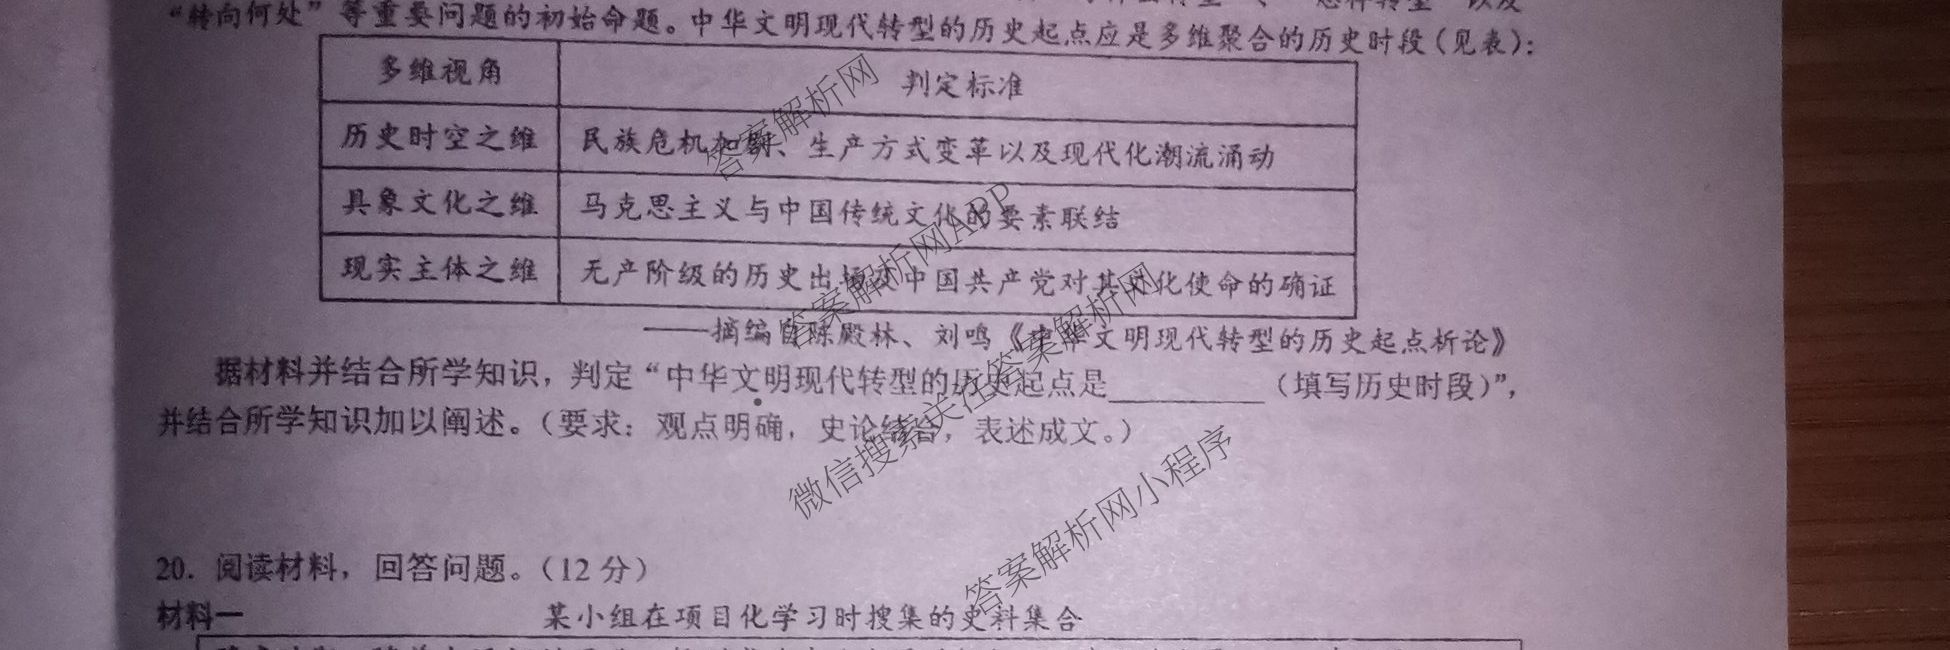 “转向何处”等重要问题的初始命题。中华文明现代转型的历史起点应是多维聚合的历史时段（见表）：
多维视角 判定标准
历史时空之维 民族危机加剧、生产方式变革以及现代化潮流涌动
具象文化之维 马克思主义与中国传统文化的要素联结
现实主体之维 无产阶级的历史出场及中国共产党对其文化使命的确证
——摘编自陈殿林、刘鸣《中华文明现代转型的历史起点析论》
据材料并结合所学知识，判定“中华文明现代转型的历史起点是__________（填写历史时段）”，
并结合所学知识加以阐述。（要求：观点明确，史论结合，表述成文。）
20. 阅读材料，回答问题。（12 分）
材料一 某小组在项目化学习时搜集的史料集合
答案解析网
答案解析网APP
微信搜索关注答案解析网
答案解析网小程序